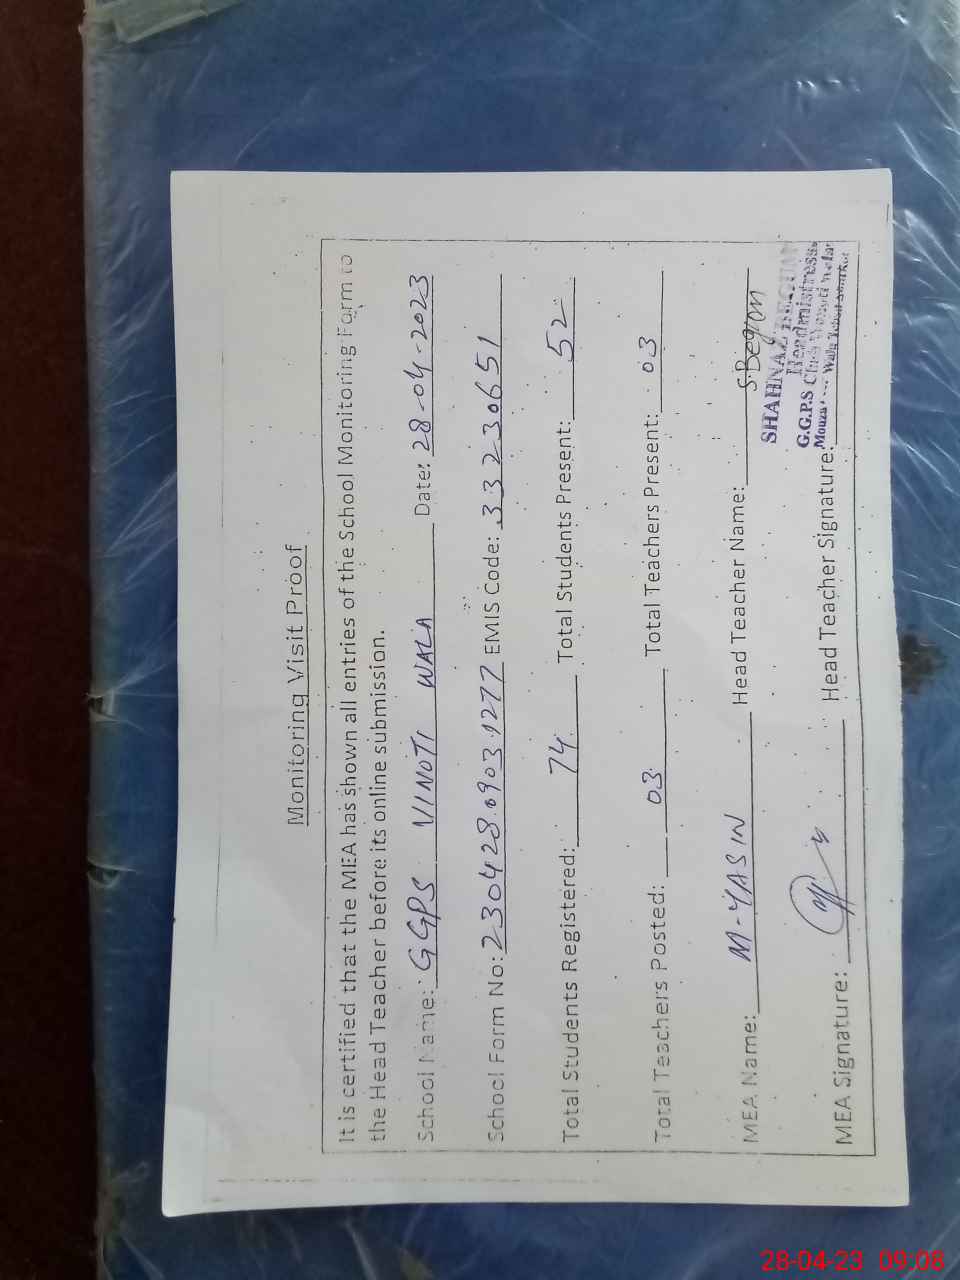 Monitoring Visit Proof
It is certified that the MEA has shown all entries of the School Monitoring Form to
the Head Teacher before its online submission.
School Name: GGPS VINOTI WALA Date: 28-04-2023
School Form No: 230428.0903.1277 EMIS Code: 33230651
Total Students Registered: 74 Total Students Present: 52
Total Teachers Posted: 03 Total Teachers Present: 03
MEA Name: M-YASIN Head Teacher Name: S.Begom
SHAHNAZ BEGUM
Headmistress
G.G.P.S
Mouza Wala
MEA Signature: Head Teacher Signature:
28-04-23 09:08